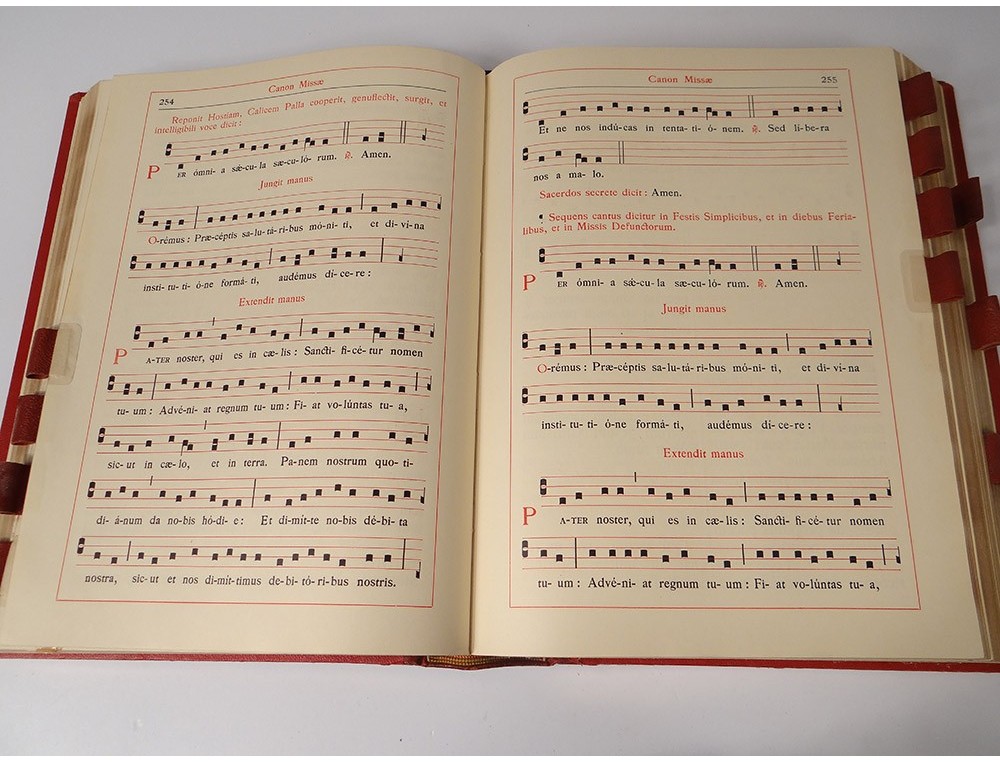 Canon Missæ
254
Reponit Hostiam, Calicem Palla cooperit, genuflectit, surgit, et
intelligibili voce dicit:
PER ómni-a sǽ-cu-la sæ-cu-ló-rum. ℟. Amen.
Jungit manus
O-rémus: Præ-céptis sa-lu-tá-ri-bus mó-ni-ti, et di-ví-na
insti-tu-ti-ó-ne formá-ti, audémus dí-ce-re:
Extendit manus
PA-TER noster, qui es in cæ-lis: Sancti-fi-cé-tur nomen
tu-um: Advé-ni-at regnum tu-um: Fi-at vo-lúntas tu-a,
sic-ut in cæ-lo, et in terra. Pa-nem nostrum quo-ti-
di-á-num da no-bis hó-di-e: Et di-mít-te no-bis dé-bi-ta
nostra, sic-ut et nos di-mít-timus de-bi-tó-ri-bus nostris.
Canon Missæ
255
Et ne nos indú-cas in tenta-ti-ó-nem. ℟. Sed lí-be-ra
nos a ma-lo.
Sacerdos secrete dicit: Amen.
¶ Sequens cantus dicitur in Festis Simplicibus, et in diebus Feria-
libus, et in Missis Defunctorum.
PER ómni-a sǽ-cu-la sæ-cu-ló-rum. ℟. Amen.
Jungit manus
O-rémus: Præ-céptis sa-lu-tá-ri-bus mó-ni-ti, et di-ví-na
insti-tu-ti-ó-ne formá-ti, audémus dí-ce-re:
Extendit manus
PA-TER noster, qui es in cæ-lis: Sancti-fi-cé-tur nomen
tu-um: Advé-ni-at regnum tu-um: Fi-at vo-lúntas tu-a,